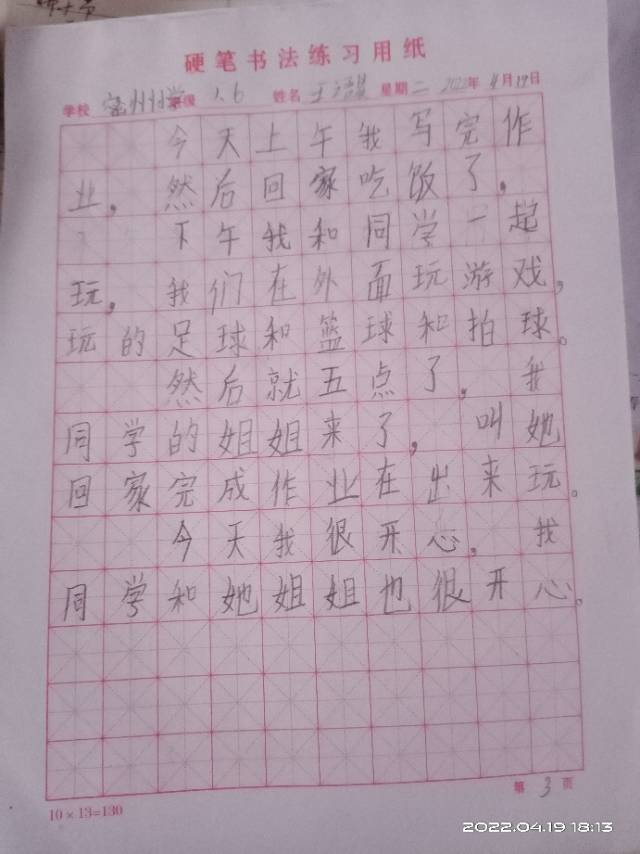 硬笔书法练习用纸
学校 班级 1.6 姓名 王 星期二 2022年4月19日
今天上午我写完作
业，然后回家吃饭了，
下午我和同学一起
玩，我们在外面玩游戏，
玩的足球和篮球和拍球。
然后就五点了，我
同学的姐姐来了，叫她
回家完成作业在出来玩。
今天我很开心，我
同学和她姐姐也很开心。
10×13=130
第3页
2022.04.19 18:13